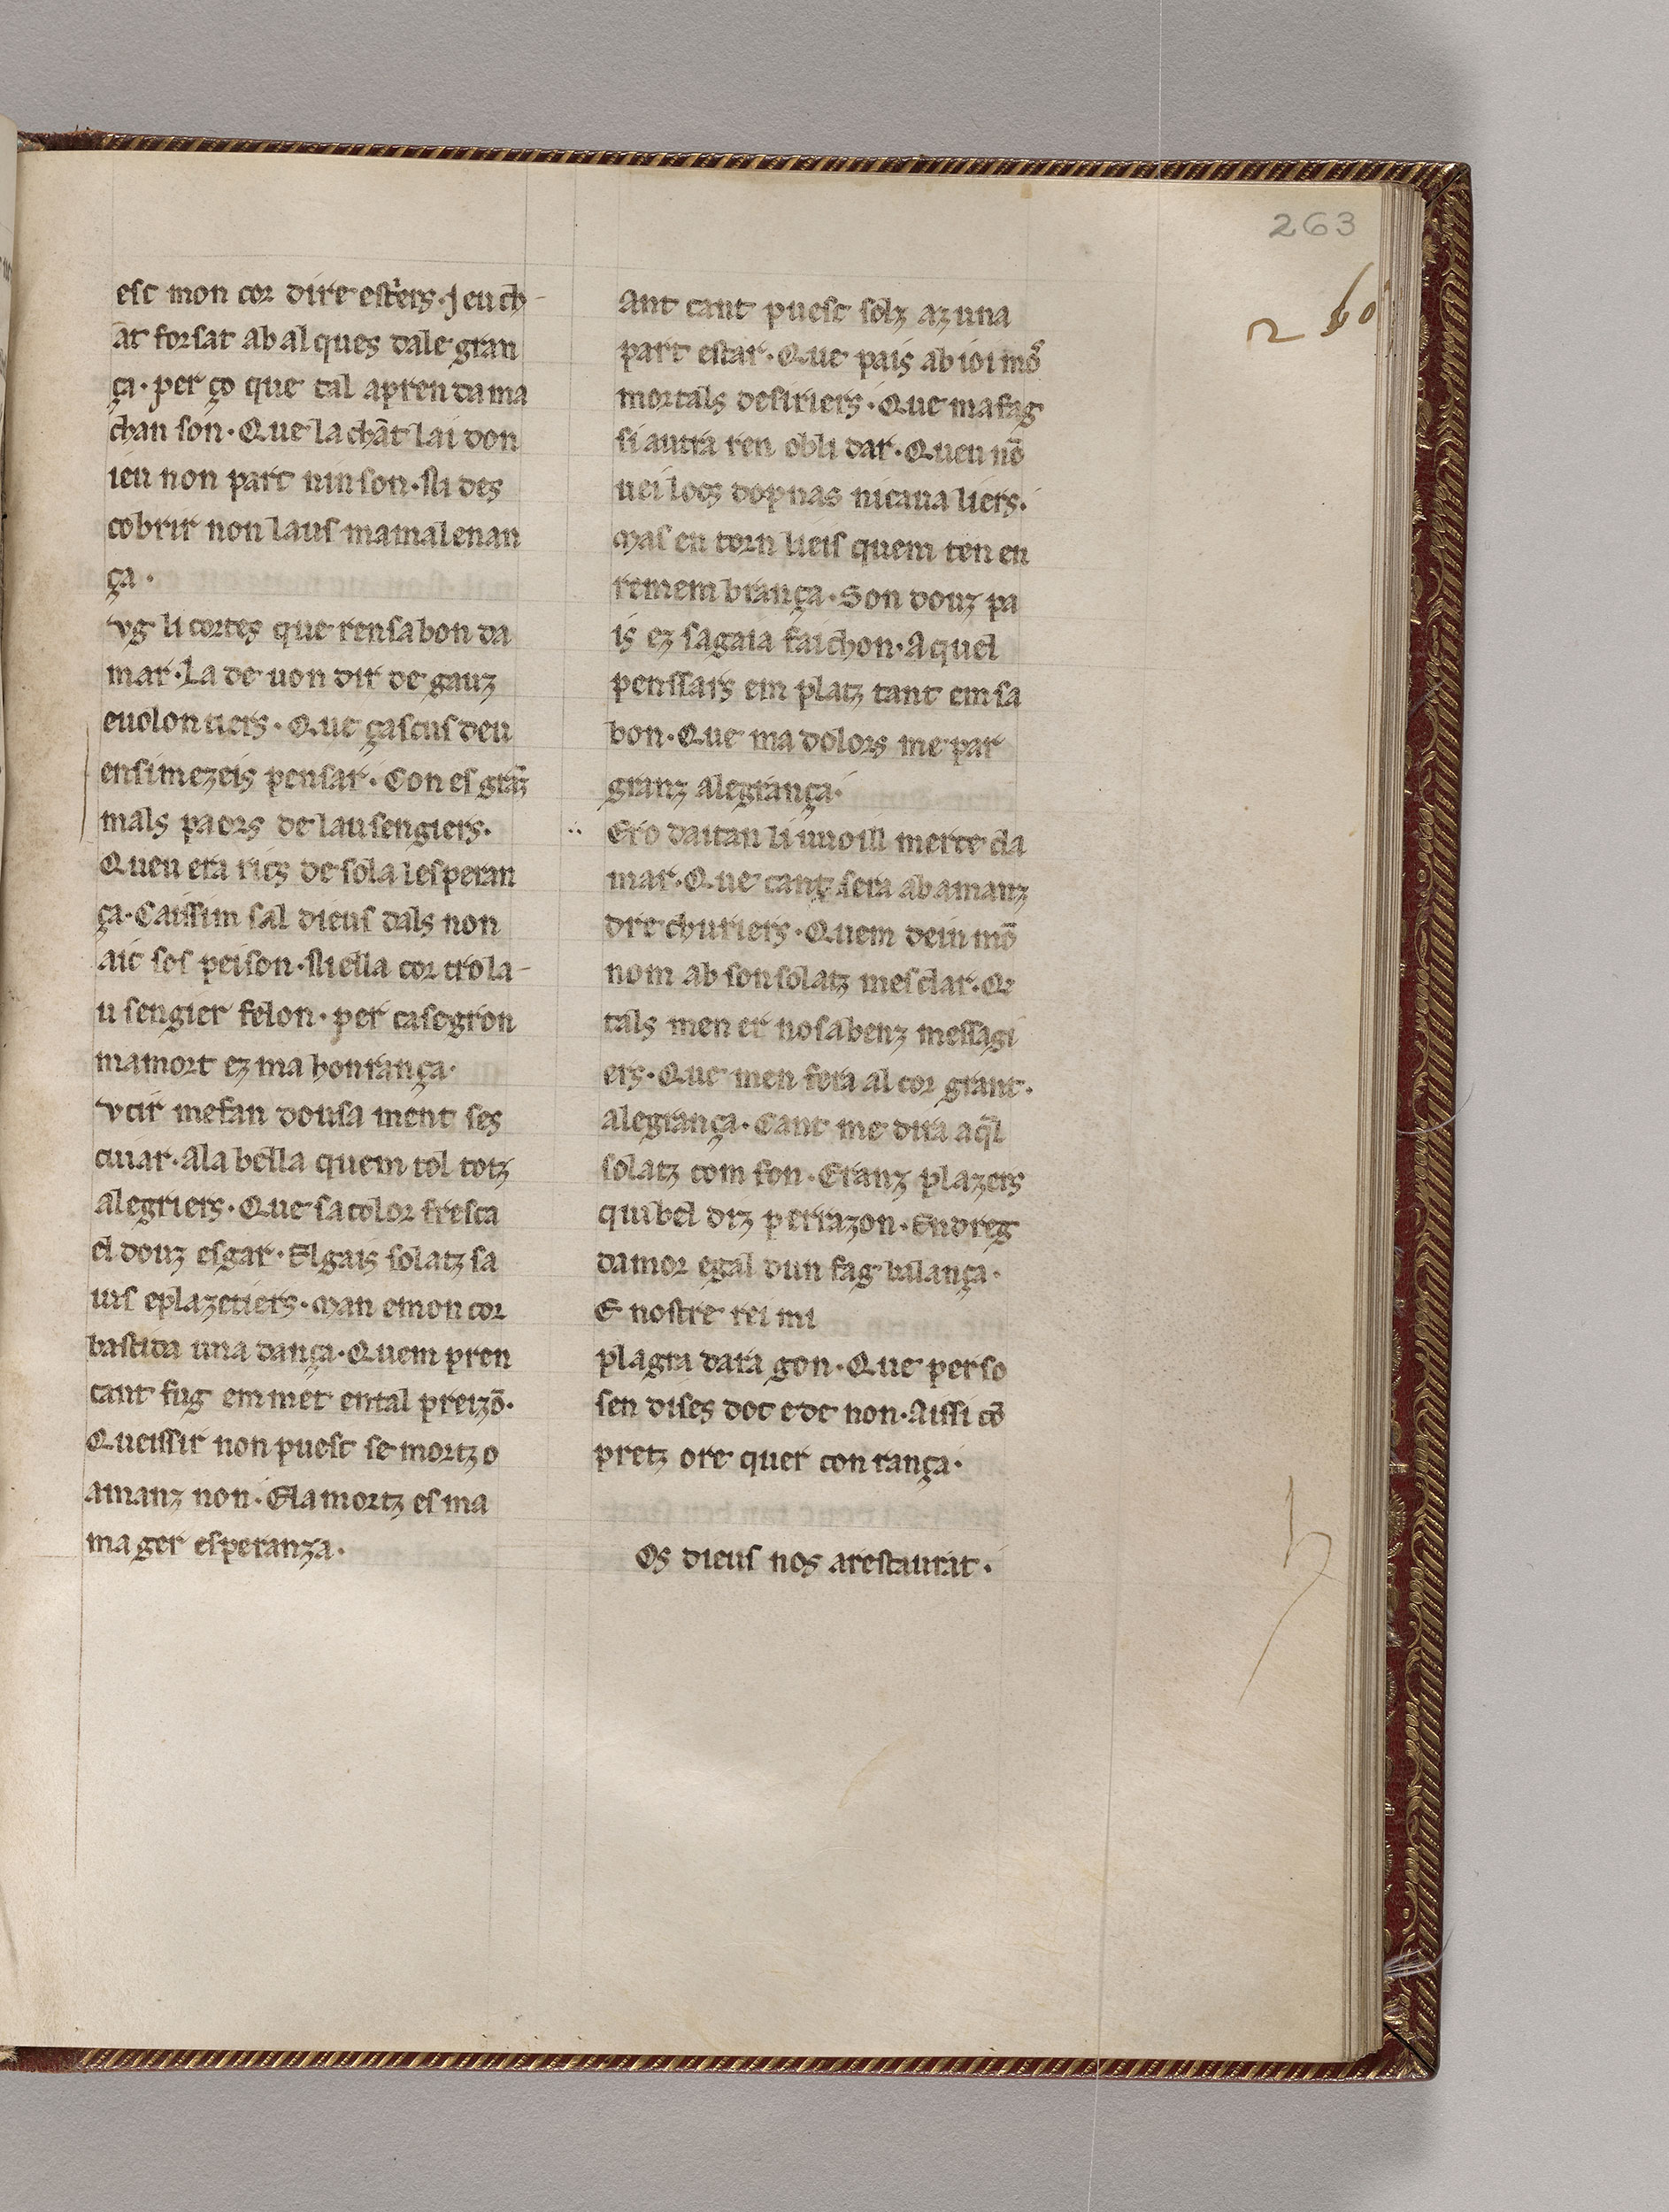 263
260
esc mon cor dire esters. Jeu ch-
āt forsat ab alques dale gran
ça. per ço que tal apren da ma
chan son. Que la chāt lai don
ieu non part nin son. Ni des
cobrir non laus ma mal enan
ça.
vg li cortes que ren sa bon da
mar. La de uon dir de gauz
e uolon tiers. Que çascus deu
ensi mezeis pensar. Con es grāz
mals pa ors de lau sengiers.
Queu era rics de sola lesperan
ça. Caissim sal dieus dals non
aic sos peison. Ni ella cor tro la-
u sengier felon. per ca segron
ma mort ez ma honrança.
vcir me fan dousa ment ses
cuiar. Ala bella quem tol totz
alegriers. Que sa color fresca
el douz esgar. El gais solatz sa
uis e plazetiers. Man e mon cor
bastida una dança. Quem pren
cant fug em met en tal preizō.
Queissir non puesc se mortz o
amanz non. Ela mortz es ma
ma ger esperanza.
Ant cant puesc solz az una
part estar. Que pais ab ioi mō
mortals desiriers. Que ma fag
si autra ren obli dar. Queu nō
uei locs dopnas ni caua liers.
Mas en torn lieis quem ten en
remem brança. Son douz pa
is ez sa gaia faichon. Aquel
penssais em platz tant em sa
bon. Que ma dolors me par
granz alegrança.
Ero daitan li uuoill merce cla
mar. Que tanz sera ab amanz
dre churiers. Quem dein mō
nom ab son solatz mesclar. Q
tals men er no sabenz messagi
ers. Que men fera al cor grant.
alegrança. Cant me dira aql
solatz com fon. Eranz plazers
quibel diz per razon. En dreg
damor egal dun fag balança.
E nostre rei mi
plagra dara gon. Que per so
sen dises doc e de non. Aissi cō
pretz ore quer con tança.
Os dieus nos a restaurat.